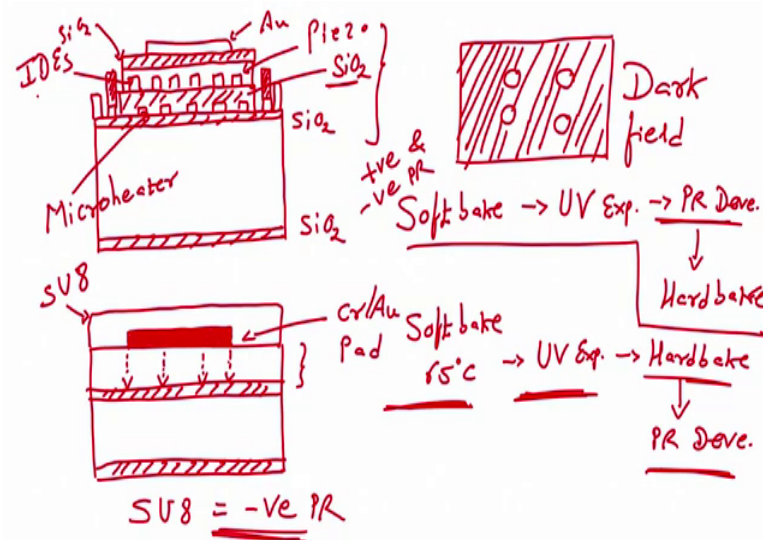 SiO2
Au
IDEs
Piezo
SiO2
SiO2
Microheater
SiO2
+ve &
-ve PR
Dark
field
Soft bake → UV Exp. → PR Deve.
↓
Hardbake
SU8
Cr/Au
Pad
Soft bake
65°C → UV Exp. → Hardbake
↓
PR Deve.
SU8 = -ve PR